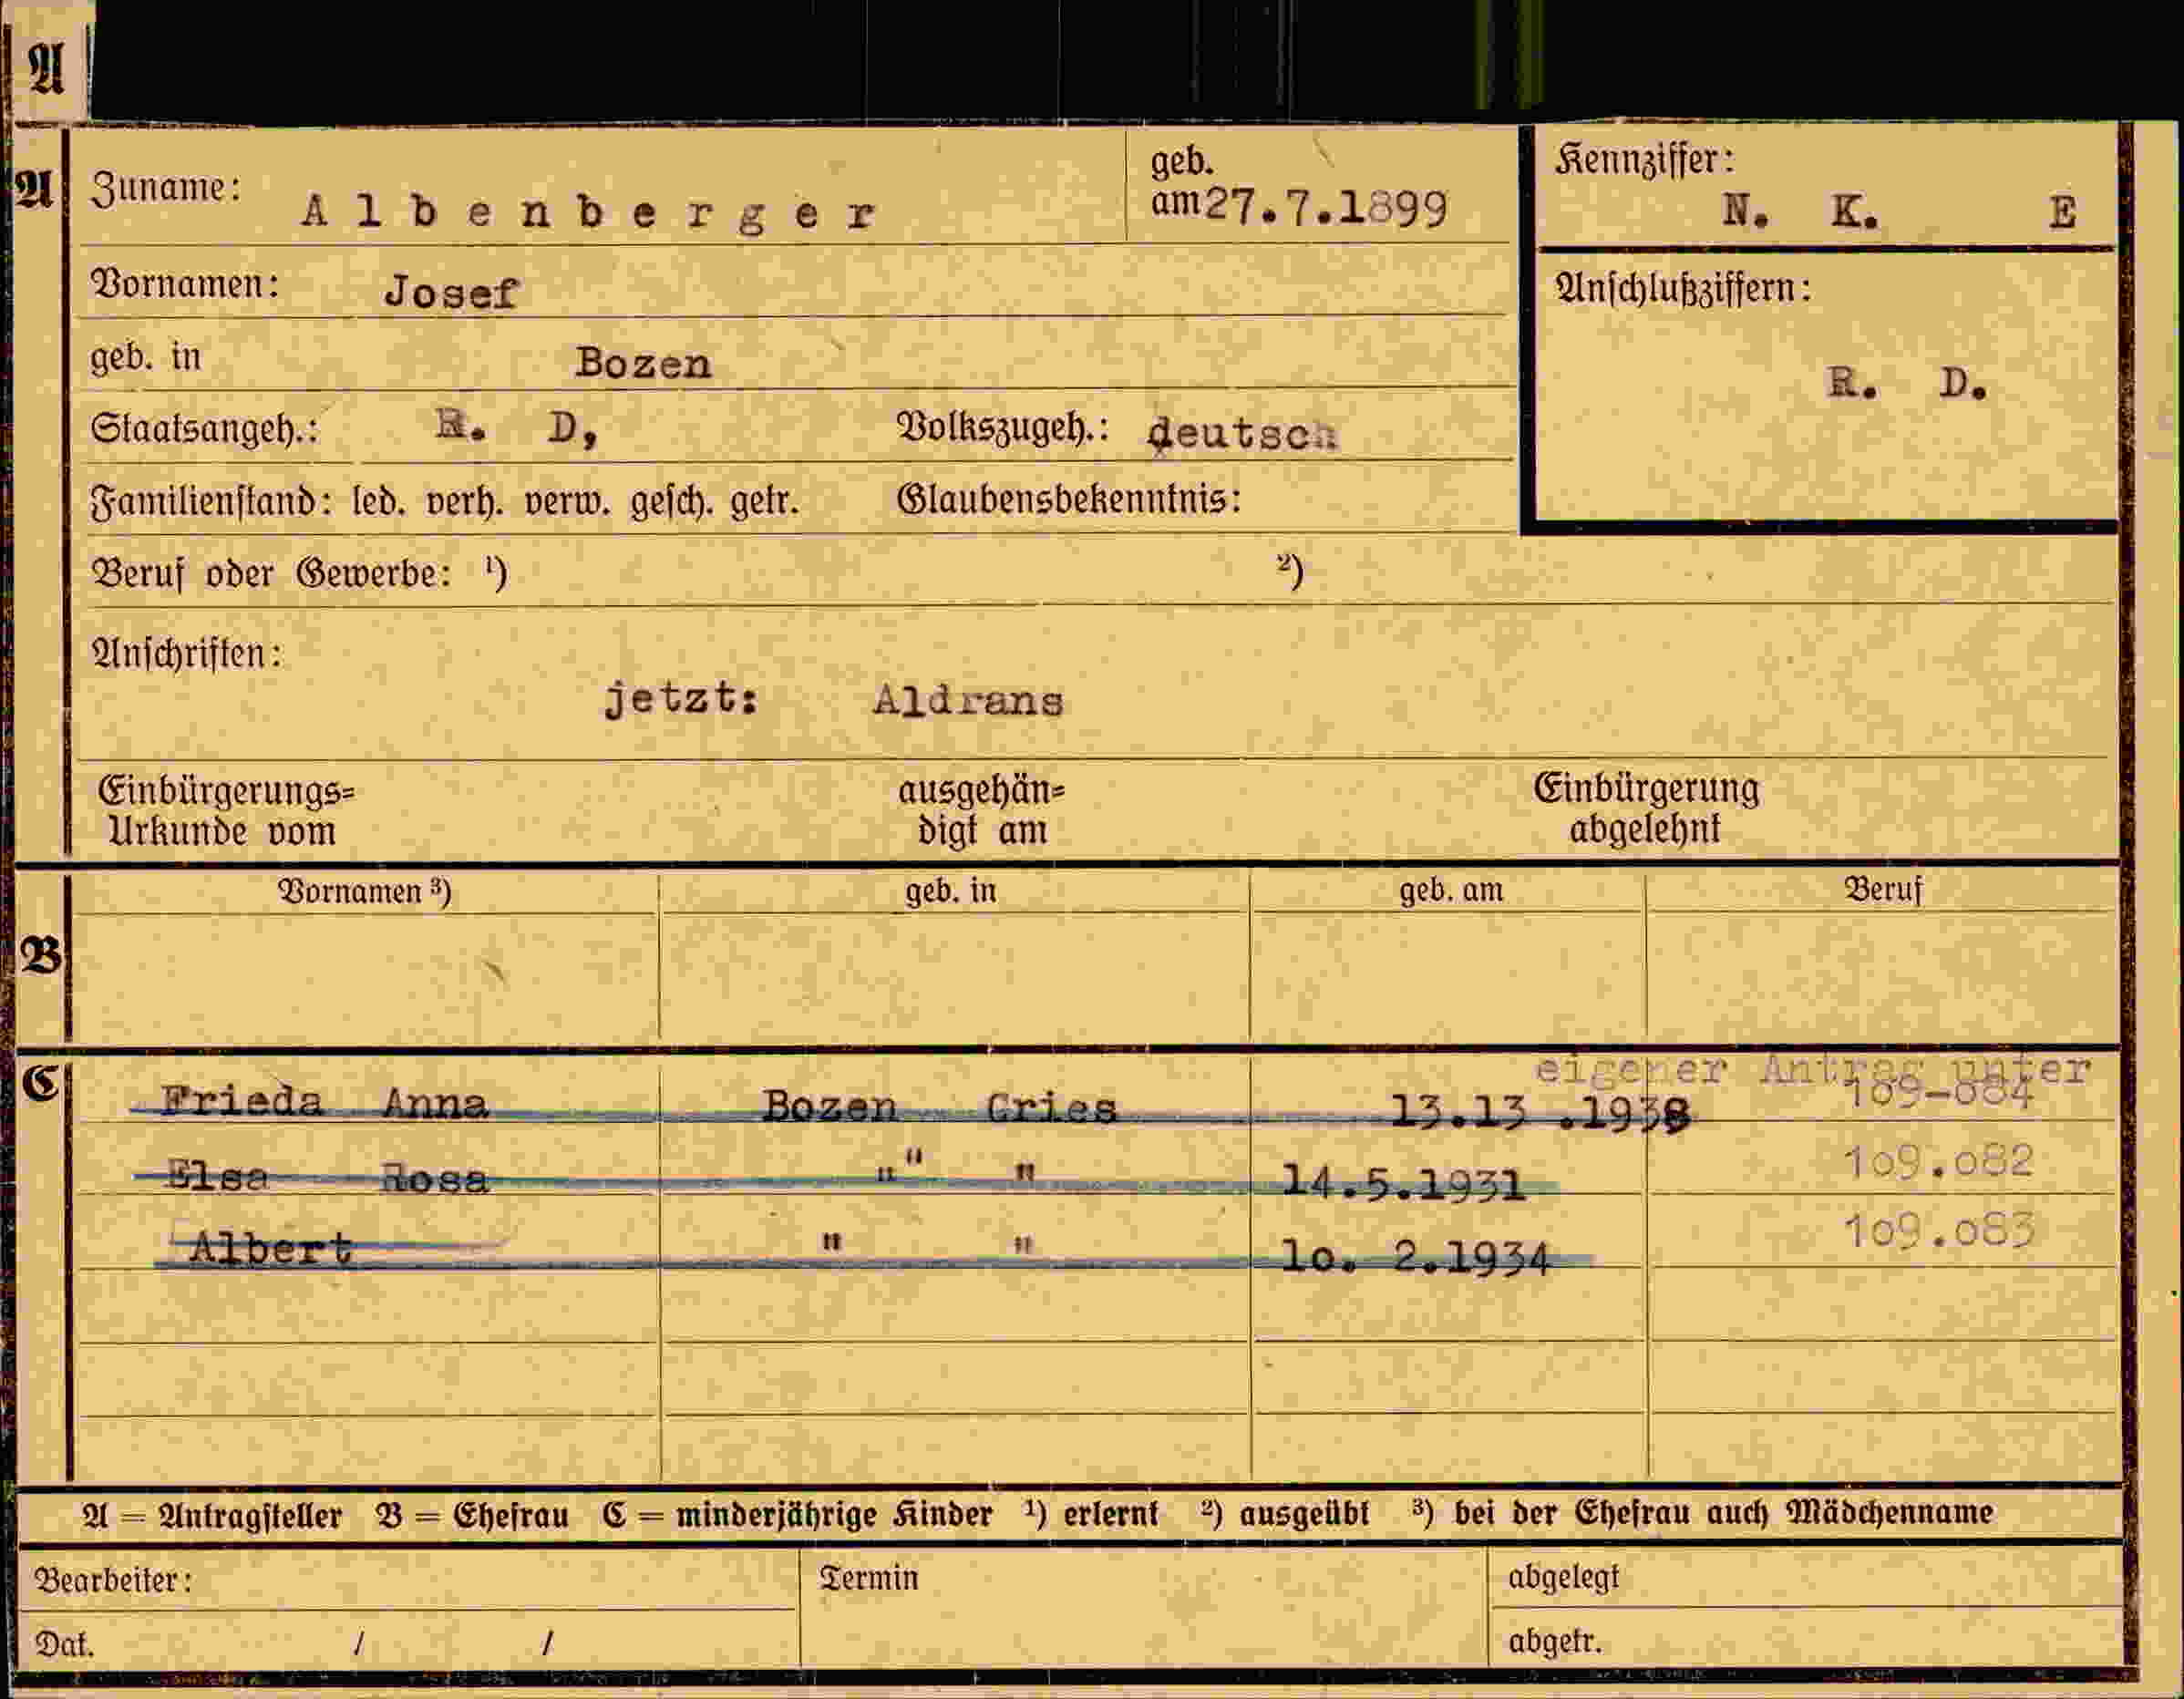 A
A Zuname: Albenberger geb. am 27.7.1899
Kennziffer:
N. K. E
Vornamen: Josef
Anschlußziffern:
geb. in Bozen
R. D.
Staatsangeh.: R. D, Volkszugeh.: deutsch
Familienstand: led. verh. verw. gesch. getr. Glaubensbekenntnis:
Beruf oder Gewerbe: ¹) ²)
Anschriften:
jetzt: Aldrans
Einbürgerungs= ausgehän= Einbürgerung
Urkunde vom digt am abgelehnt
Vornamen ³) geb. in geb. am Beruf
B
C
eigener Antrag unter
Frieda Anna Bozen Gries 13.13 .1938 109-084
Elsa Rosa " " " 14.5.1931 109.082
Albert " " 10. 2.1934 109.083
A = Antragsteller B = Ehefrau C = minderjährige Kinder ¹) erlernt ²) ausgeübt ³) bei der Ehefrau auch Mädchenname
Bearbeiter: Termin abgelegt
Dat. / / abgetr.